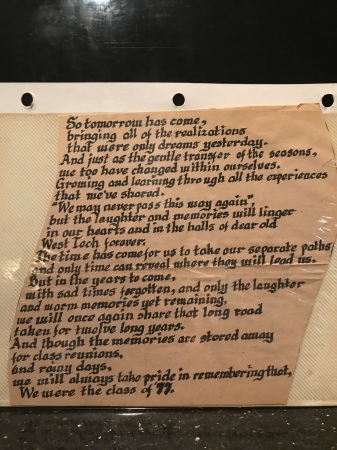 So tomorrow has come,
bringing all of the realizations
that were only dreams yesterday.
And just as the gentle transfer of the seasons,
we too have changed within ourselves.
Growing and learning through all the experiences
that we've shared.
"We may never pass this way again",
but the laughter and memories will linger
in our hearts and in the halls of dear old
West Tech forever.
The time has come for us to take our separate paths
and only time can reveal where they will lead us.
But in the years to come,
with sad times forgotten, and only the laughter
and warm memories yet remaining,
we will once again share that long road
taken for twelve long years.
And though the memories are stored away
for class reunions,
and rainy days,
we will always take pride in remembering that,
We were the class of 77.